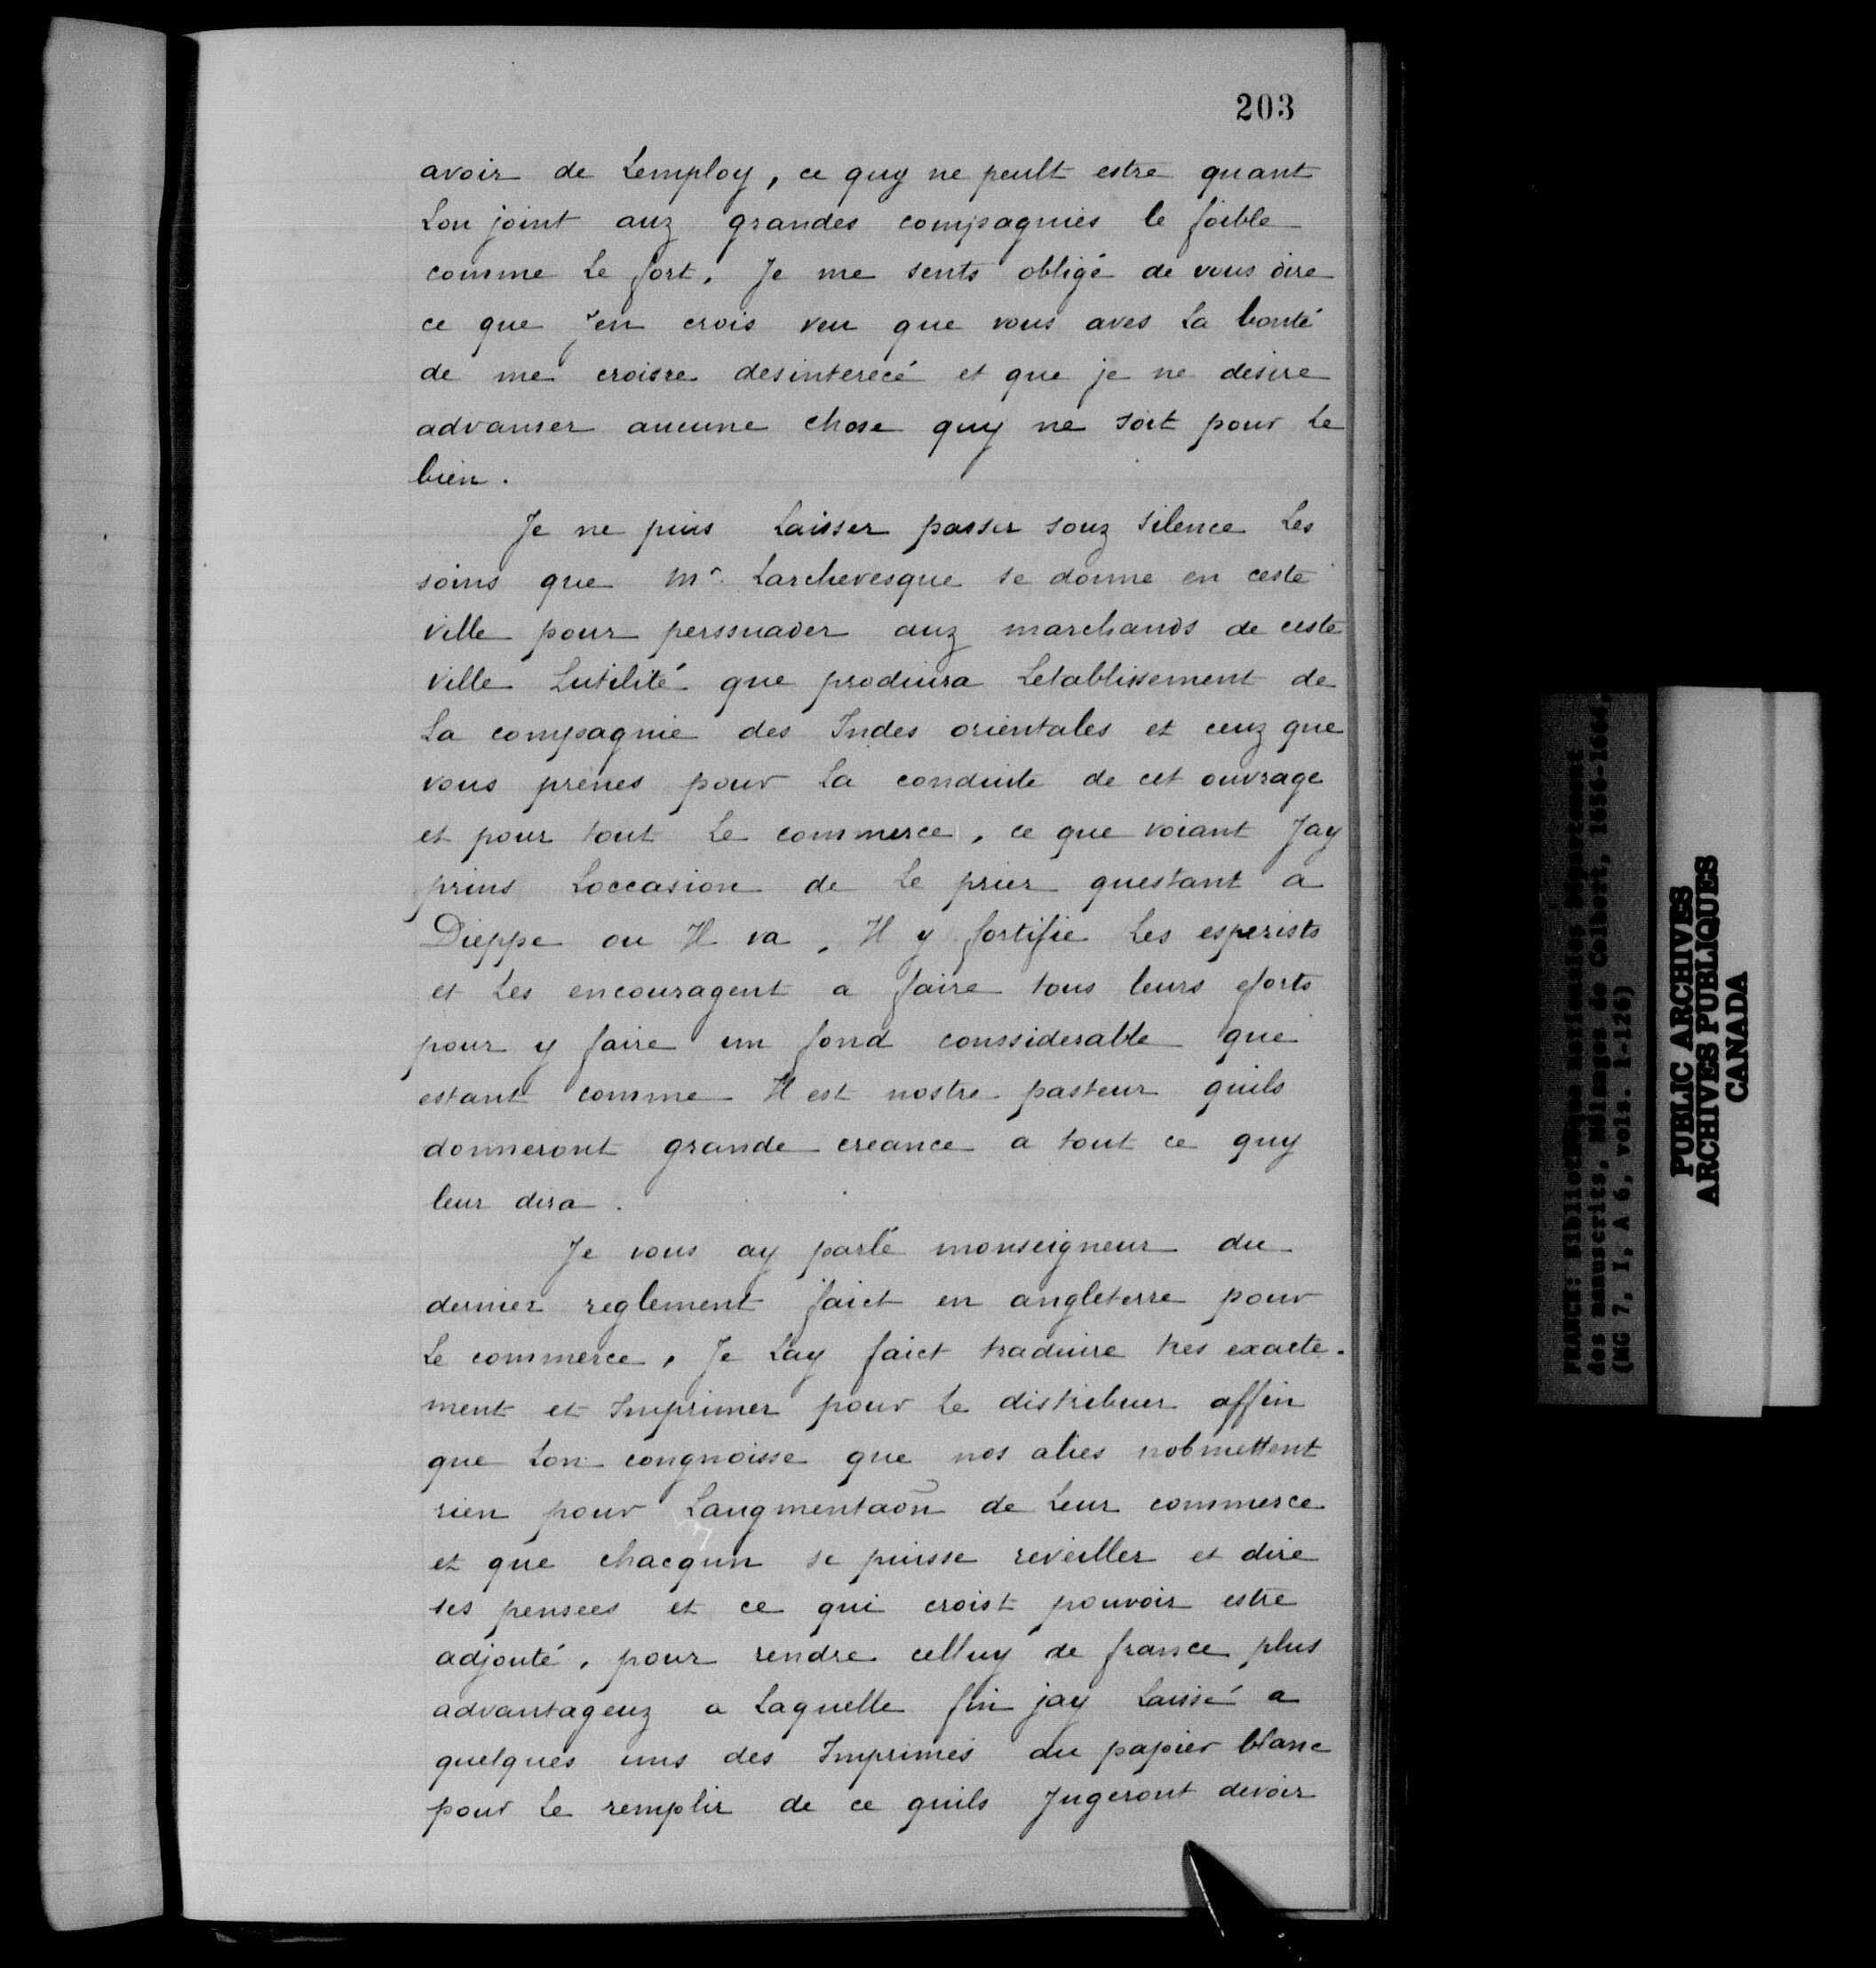 203
avoir de Lemploy, ce quy ne peult estre quant
Lon joint auz grandes compagnies le foible
comme Le fort. Je me sents obligé de vous dire
ce que j'en crois veu que vous aves La bonté
de me croisre desinterecé et que je ne desire
advanser aucune chose quy ne soit pour Le
bien.
Je ne puis Laisser passer souz silence Les
soins que Mr. Larchevesque se donne en ceste
ville pour perssuader auz marchands de ceste
ville Lutilité que produira Letablissement de
La compagnie des Indes orientales et ceuz que
vous prenes pour La conduite de cet ouvrage
et pour tout Le commerce, ce que voiant Jay
prins Loccasion de Le prier questant a
Dieppe ou Il va, Il y fortifie Les esperists
et Les encouragent a faire tous leurs eforts
pour y faire un fond conssiderable que
estant comme Il est nostre pasteur quils
donneront grande creance a tout ce quy
leur dira.
Je vous ay parlé monseigneur du
dernier reglement faict en angleterre pour
Le commerce, Je Lay faict traduire tres exacte-
ment et Imprimer pour Le distribuer affin
que Lon congnoisse que nos alies nobmettent
rien pour Laugmentaon de Leur commerce
et que chacqun se puisse reveiller et dire
ses pensees et ce qui croist pouvoir estre
adjouté, pour rendre celluy de france plus
advantageuz a Laquelle fin jay Laissé a
quelques uns des Imprimés du papier blanc
pour Le remplir de ce quils Jugeront devoir
FRANCE: Bibliothèque nationale, Département
des manuscrits, Mélanges de Colbert, 1656-1664,
(MG 7, I, A 6, vols. 1-126)
PUBLIC ARCHIVES
ARCHIVES PUBLIQUES
CANADA